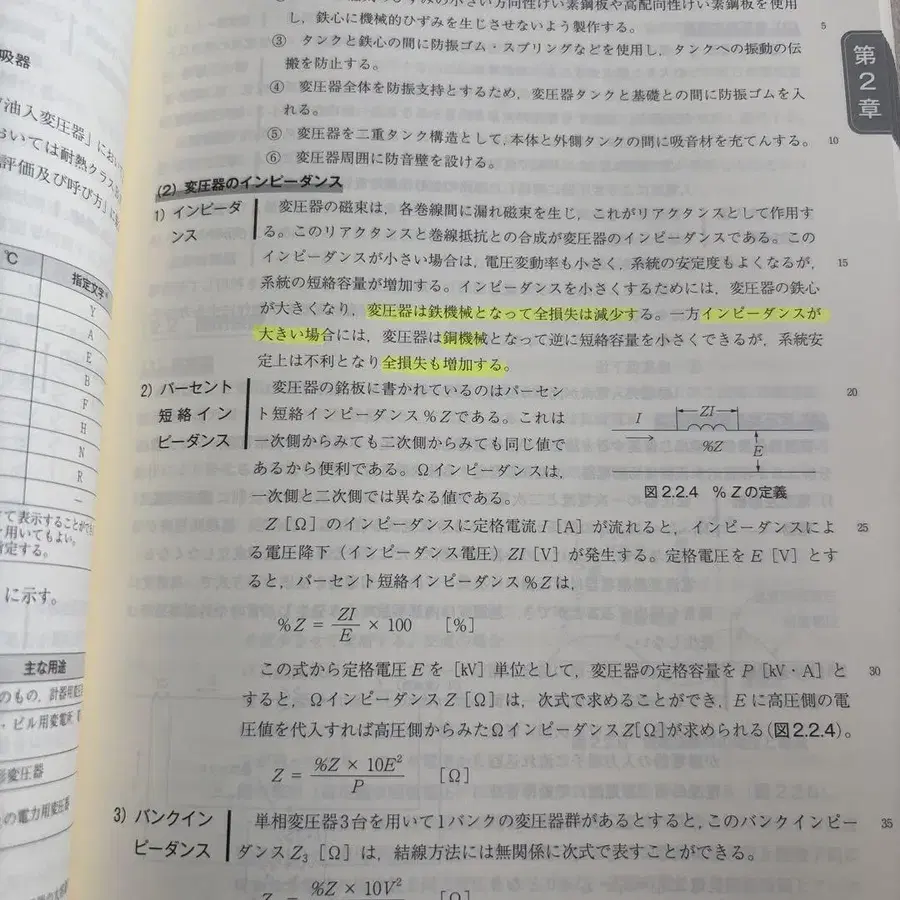 し，鉄心に機械的ひずみを生じさせないよう製作する。
5
③ タンクと鉄心の間に防振ゴム・スプリングなどを使用し，タンクへの振動の伝
搬を防止する。
④ 変圧器全体を防振支持とするため，変圧器タンクと基礎との間に防振ゴムを入
れる。
⑤ 変圧器を二重タンク構造として，本体と外側タンクの間に吸音材を充てんする。
10
⑥ 変圧器周囲に防音壁を設ける。
第2章
(2) 変圧器のインピーダンス
1) インピーダ
ンス
変圧器の磁束は，各巻線間に漏れ磁束を生じ，これがリアクタンスとして作用す
る。このリアクタンスと巻線抵抗との合成が変圧器のインピーダンスである。この
インピーダンスが小さい場合は，電圧変動率も小さく，系統の安定度もよくなるが，
15
系統の短絡容量が増加する。インピーダンスを小さくするためには，変圧器の鉄心
が大きくなり，変圧器は鉄機械となって全損失は減少する。一方インピーダンスが
大きい場合には，変圧器は銅機械となって逆に短絡容量を小さくできるが，系統安
定上は不利となり全損失も増加する。
2) パーセント
短絡イン
ピーダンス
変圧器の銘板に書かれているのはパーセン
20
ト短絡インピーダンス%Zである。これは
一次側からみても二次側からみても同じ値で
あるから便利である。Ωインピーダンスは，
一次側と二次側では異なる値である。
I
ZI
%Z
E
図2.2.4 %Zの定義
Z［Ω］のインピーダンスに定格電流I［A］が流れると，インピーダンスによ
25
る電圧降下（インピーダンス電圧）ZI［V］が発生する。定格電圧をE［V］とす
ると，パーセント短絡インピーダンス%Zは，
%Z = ZI/E × 100 ［%］
この式から定格電圧Eを［kV］単位として，変圧器の定格容量をP［kV・A］と
30
すると，ΩインピーダンスZ［Ω］は，次式で求めることができ，Eに高圧側の電
圧値を代入すれば高圧側からみたΩインピーダンスZ［Ω］が求められる（図2.2.4）。
Z = %Z × 10E²/P ［Ω］
3) バンクイン
ピーダンス
単相変圧器3台を用いて1バンクの変圧器群があるとすると，このバンクインピー
35
ダンスZ₃［Ω］は，結線方法には無関係に次式で表すことができる。
%Z × 10V²
［Ω］
吸器
油入変圧器」におい
おいては耐熱クラス
評価及び呼び方」に
℃
指定文字
Y
A
E
B
F
H
N
R
－
て表示することが
用いてもよい。
指定する。
に示す。
主な用途
のもの，計器用変圧
・ビル用変電所
形変圧器
の電力用変圧器